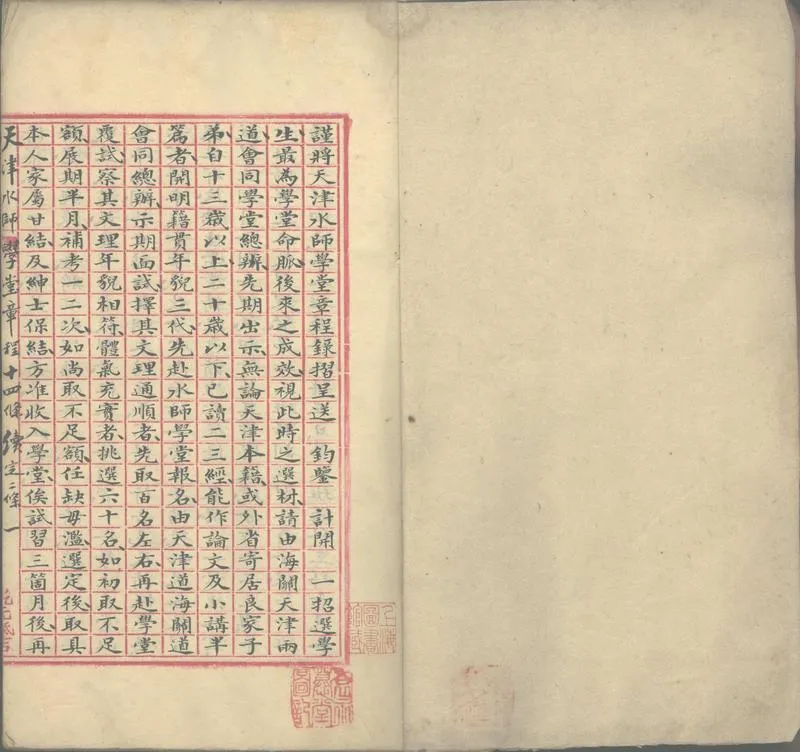 謹將天津水師學堂章程錄摺呈送 鈞鑒 計開 一招選學
生最為學堂命脈後來之成效視此時之選材請由海關天津兩
道會同學堂總辦先期出示無論天津本籍或外省寄居良家子
弟自十三歲以上二十歲以下已讀二三經能作論文及小講半
篇者開明籍貫年貌三代先赴水師學堂報名由天津道海關道
會同總辦示期面試擇其文理通順者先取百名左右再赴學堂
覆試察其文理年貌相符體氣充實者挑選六十名如初取不足
額展期半月補考一二次如尚取不足額任缺毋濫選定後取具
本人家屬甘結及紳士保結方准收入學堂俟試習三箇月後再
天津水師學堂章程十四條 續定二條 一
上海
圖書
館藏